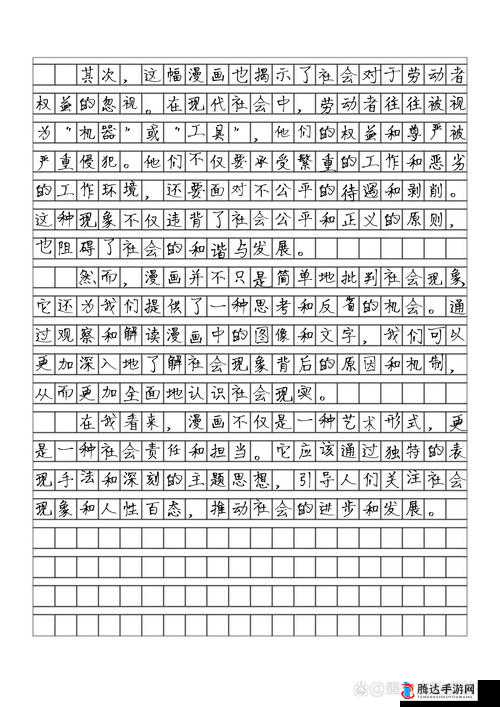 其次，这幅漫画也揭示了社会对于劳动者
权益的忽视。在现代社会中，劳动者往往被视
为"机器"或"工具"，他们的权益和尊严被
严重侵犯。他们不仅要承受繁重的工作和恶劣
的工作环境，还要面对不公平的待遇和剥削。
这种现象不仅违背了社会公平和正义的原则，
也阻碍了社会的和谐与发展。
然而，漫画并不只是简单地批判社会现象
它还为我们提供了一种思考和反省的机会。通
过观察和解读漫画中的图像和文字，我们可以
更加深入地了解社会现象背后的原因和机制，
从而更加全面地认识社会现实。
在我看来，漫画不仅是一种艺术形式，更
是一种社会责任和担当。它应该通过独特的表
现手法和深刻的主题思想，引导人们关注社会
现象和人性百态，推动社会的进步和发展。
腾达手游网